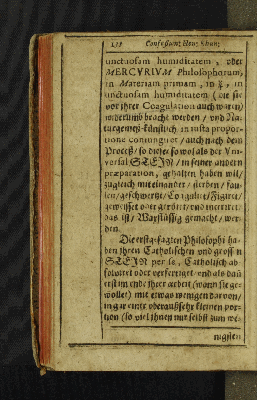 Confessium: Henr. Khun:
unctuosam humiditatem, oder
MERCVRIVM Philosophorum,
in Materiam primam, in ☿, in
unctuosam humiditatem (wie sie
vor jhrer Coagulation auch waren)
widerumb bracht werden / vnd Na-
turgemeß-künstlich in iusta propor-
tione coniungiret / auch nach dem
Proceß / so dieser so wol als der Vni-
versal STEIN / in seiner andern
præparation, gehalten haben will /
zugleich miteinander / sterben / fau-
len / geschwertzt / Coagulirt / Figiret /
geweisset oder gerötet / vnd incerirt /
das ist / Waxflüssig gemacht / wer-
den.
Die erstgesagten Philosophi ha-
ben jhren Catholischen vnd grossen
STEIN per se, Catholisch ab-
solviret oder verfertiget / vnd als dañ
erst im ende jhrer arbeit (wann sie ge-
wollet) mit etwas wenigen darvon /
in gar einer oberaußsehr kleinen por-
tion (so viel jhnen nur selbst zum we-
nigsten